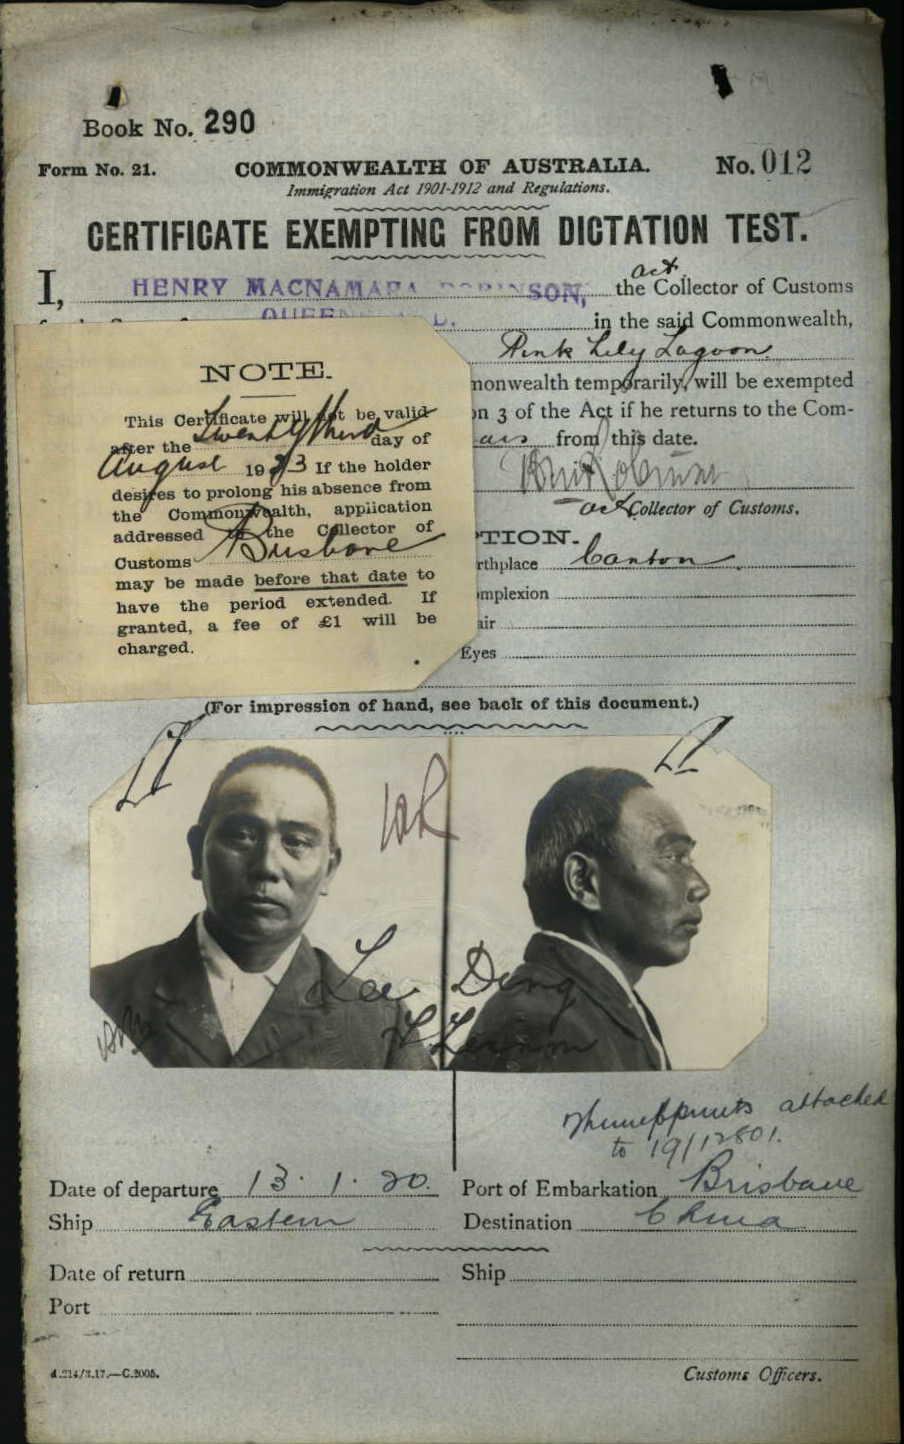 Book No. 290
Form No. 21. COMMONWEALTH OF AUSTRALIA. No. 012
Immigration Act 1901-1912 and Regulations.
CERTIFICATE EXEMPTING FROM DICTATION TEST.
act
I, HENRY MACNAMARA ROBINSON, the Collector of Customs
in the said Commonwealth,
Pink Lily Lagoon
monwealth temporarily, will be exempted
on 3 of the Act if he returns to the Com-
ars from this date.
act Collector of Customs.
PTION.
rthplace Canton
omplexion
air
Eyes
NOTE.
This Certificate will not be valid
after the Twenty third day of
August 1923 If the holder
desires to prolong his absence from
the Commonwealth, application
addressed the Collector of
Customs Brisbane
may be made before that date to
have the period extended. If
granted, a fee of £1 will be
charged.
(For impression of hand, see back of this document.)
Lee Ding
attached
to 19/12801.
Date of departure 13.1.20. Port of Embarkation Brisbane
Ship Eastern Destination China
Date of return Ship
Port
Customs Officers.